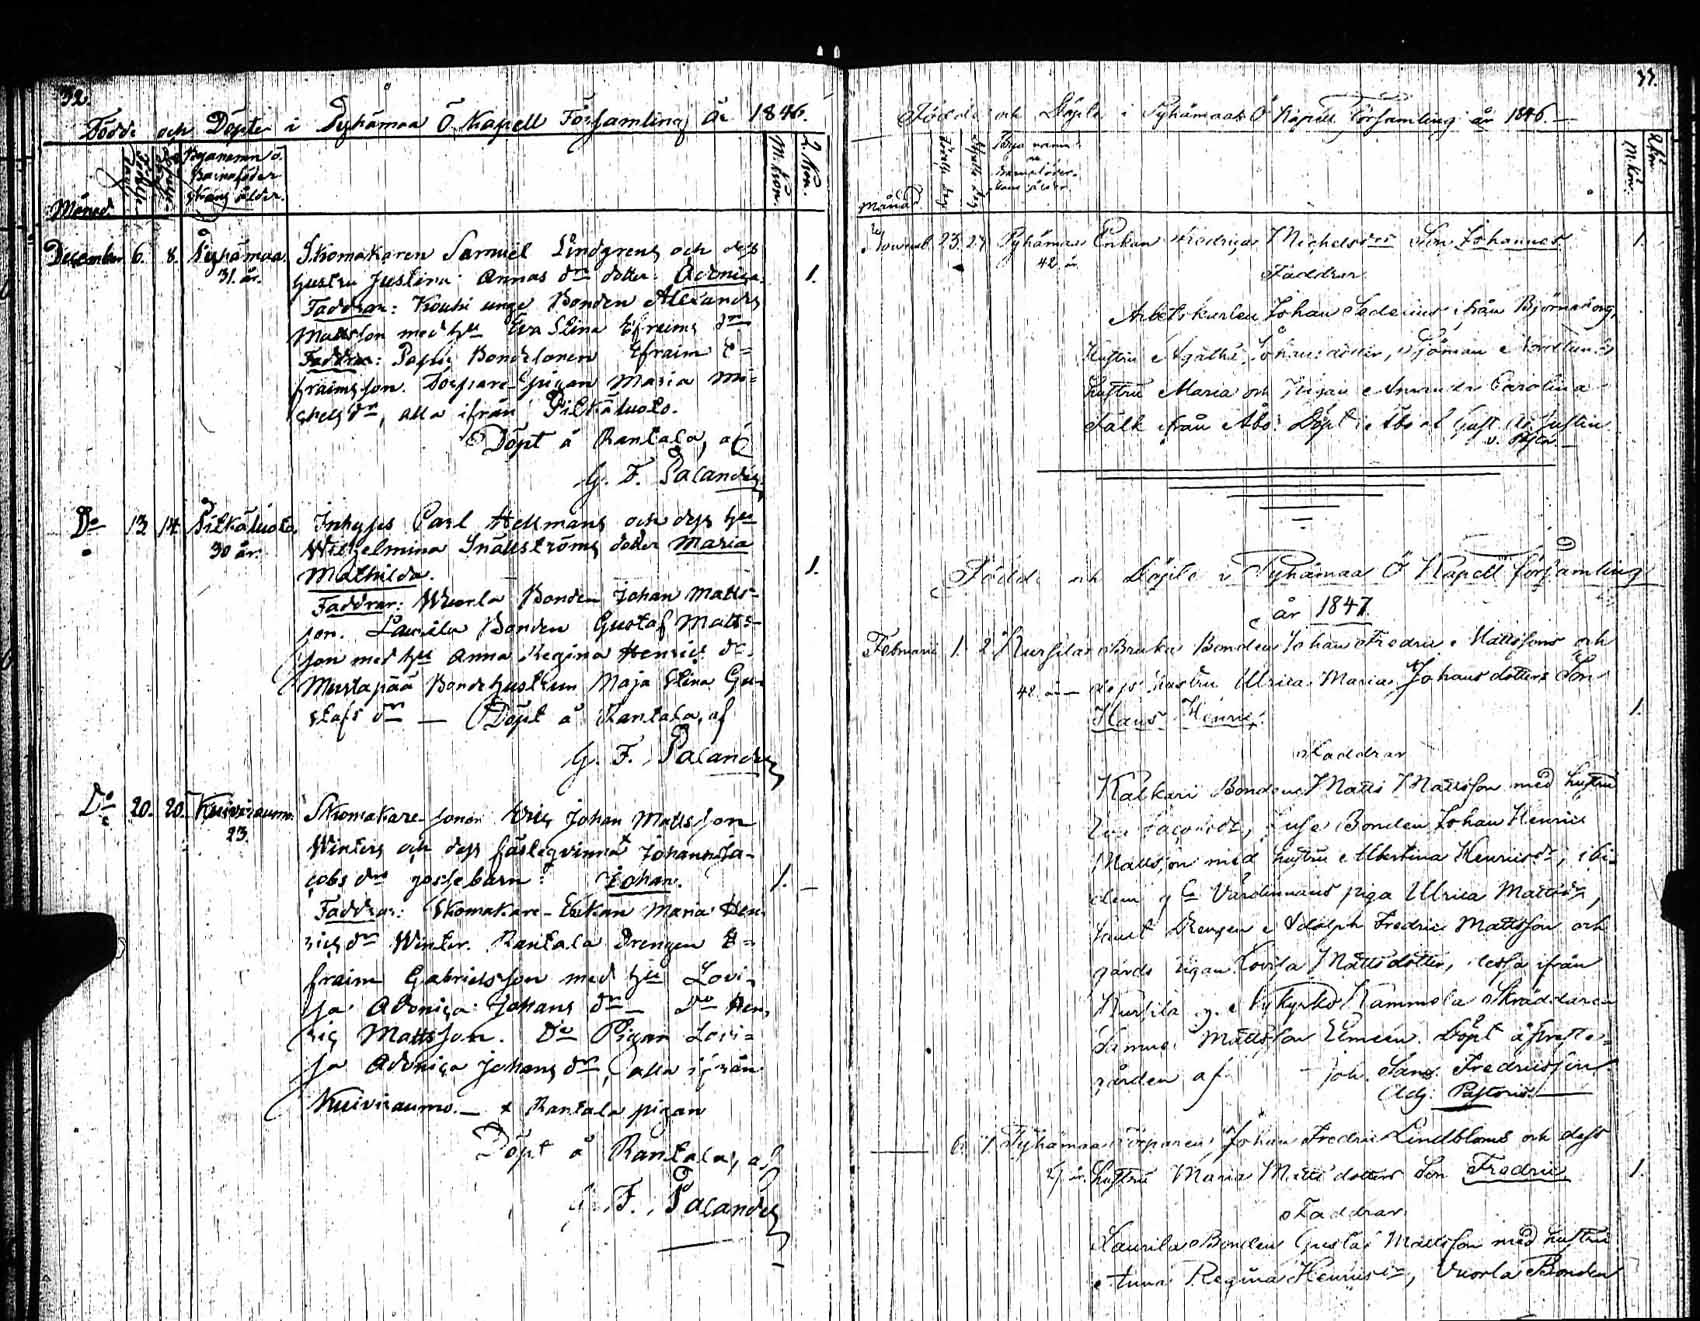 32.
Födde och Döpte i Pyhämaa Ö. Kapell Församling År 1846.
Månad.
Byanamn o.
Barnaföder
skans ålder.
M. Kön.
Q. Kön.
December 6. 8. Pyhämaa. Skomakaren Samuel Lindgrens och dess
31. år. hustru Justina Annas dr dotter: Adeniga. 1.
Faddrar: Kouhi unge Bonden Alexander
Mattsson med hu Eva Stina Efraims dr
Faddrar: Bondesonen Efraim E=
fraimsson. Torpare-Pigan Maria Mi=
chels dr, alla ifrån Pitkäluoto.
Döpt å Rantala, af
G. F. Palander
Do 13 14 Pitkäluoto. Inhyses Carl Hellmans och dess hu
30 år. Wilhelmina Snällströms dotter Maria
Mathilda. 1.
Faddrar: Wuorla Bonden Johan Matts=
son. Laurila Bonden Gustaf Matts=
son med hu Anna Regina Henrics dr.
Mustapää Bondehustrun Maja Stina Gu=
stafs dr — Döpt å Rantala, af
G. F. Palander
Do 20. 20. Kuivirauma. Skomakare-sonen Eric Johan Mattsson
23. Winters och dess fästeqvinna Johanna Ja-
cobs dr gossebarn: Johan. 1.
Faddrar: Skomakare-Enkan Maria Hen-
rics dr Winter. Rantala Drengen E=
fraim Gabrielsson med hu Lovi-
sa Adeniga Johans dr — Do Hen,
ric Mattsson. Do Pigan Lovi=
sa Adeniga Johans dr, alla ifrån
Kuivirauma. — x Rantala pigan
Döpt å Rantala, af
G. F. Palander
33.
Födde och Döpte i Pyhämaa Ö Kapell Församling år 1846. —
Månad
M. Kön.
Q. Kön.
Novemb. 23. 27 Pyhämaa Enkan Fredrica Michelsdrs Son Johannes 1.
42 å
Faddrar
Arbetskarlen Johan Sederius ifrån Björneborg,
Hustru Agatha Johansdotter, Sjöman Nordlunds
hustru Maria och Pigan Amanda Carolina
Falk ifrån Åbo: Döpt i Åbo af Gust. Ad.
Födde och Döpte i Pyhämaa Ö Kapell församling
år 1847.
Februarii 1. 2 Kursila Bruka Bonden Johan Fredric Mattssons och
42 år — dess hustru Ulrica Maria Johansdotters Son
Hans Henric. 1.
Faddrar
Kalkari Bonden Matts Mattsson med hustru
Eva Bonden Johan Henric
Mattsson med hustru Albertina Henricsdr, ibi-
dem piga Ulrica Mattsdr,
samt Drengen Adolph Fredric Mattsson och
gårds Pigan Lovisa Mattsdotter, dessa ifrån
Kursila Nykyrko Kammela Skräddaren
Samuel Mattsson Elmén. Döpt å
gården af Joh. Fredricsson
Adj. Pastoris. —
6. 7. Pyhämaa Torparen Johan Fredric Lindbloms och dess
hustru Maria Mattsdotters Son Fredric 1.
Faddrar
Laurila Bonden Gustaf Mattsson med hustru
Anna Regina Henricsdr, Vuorla Bonden